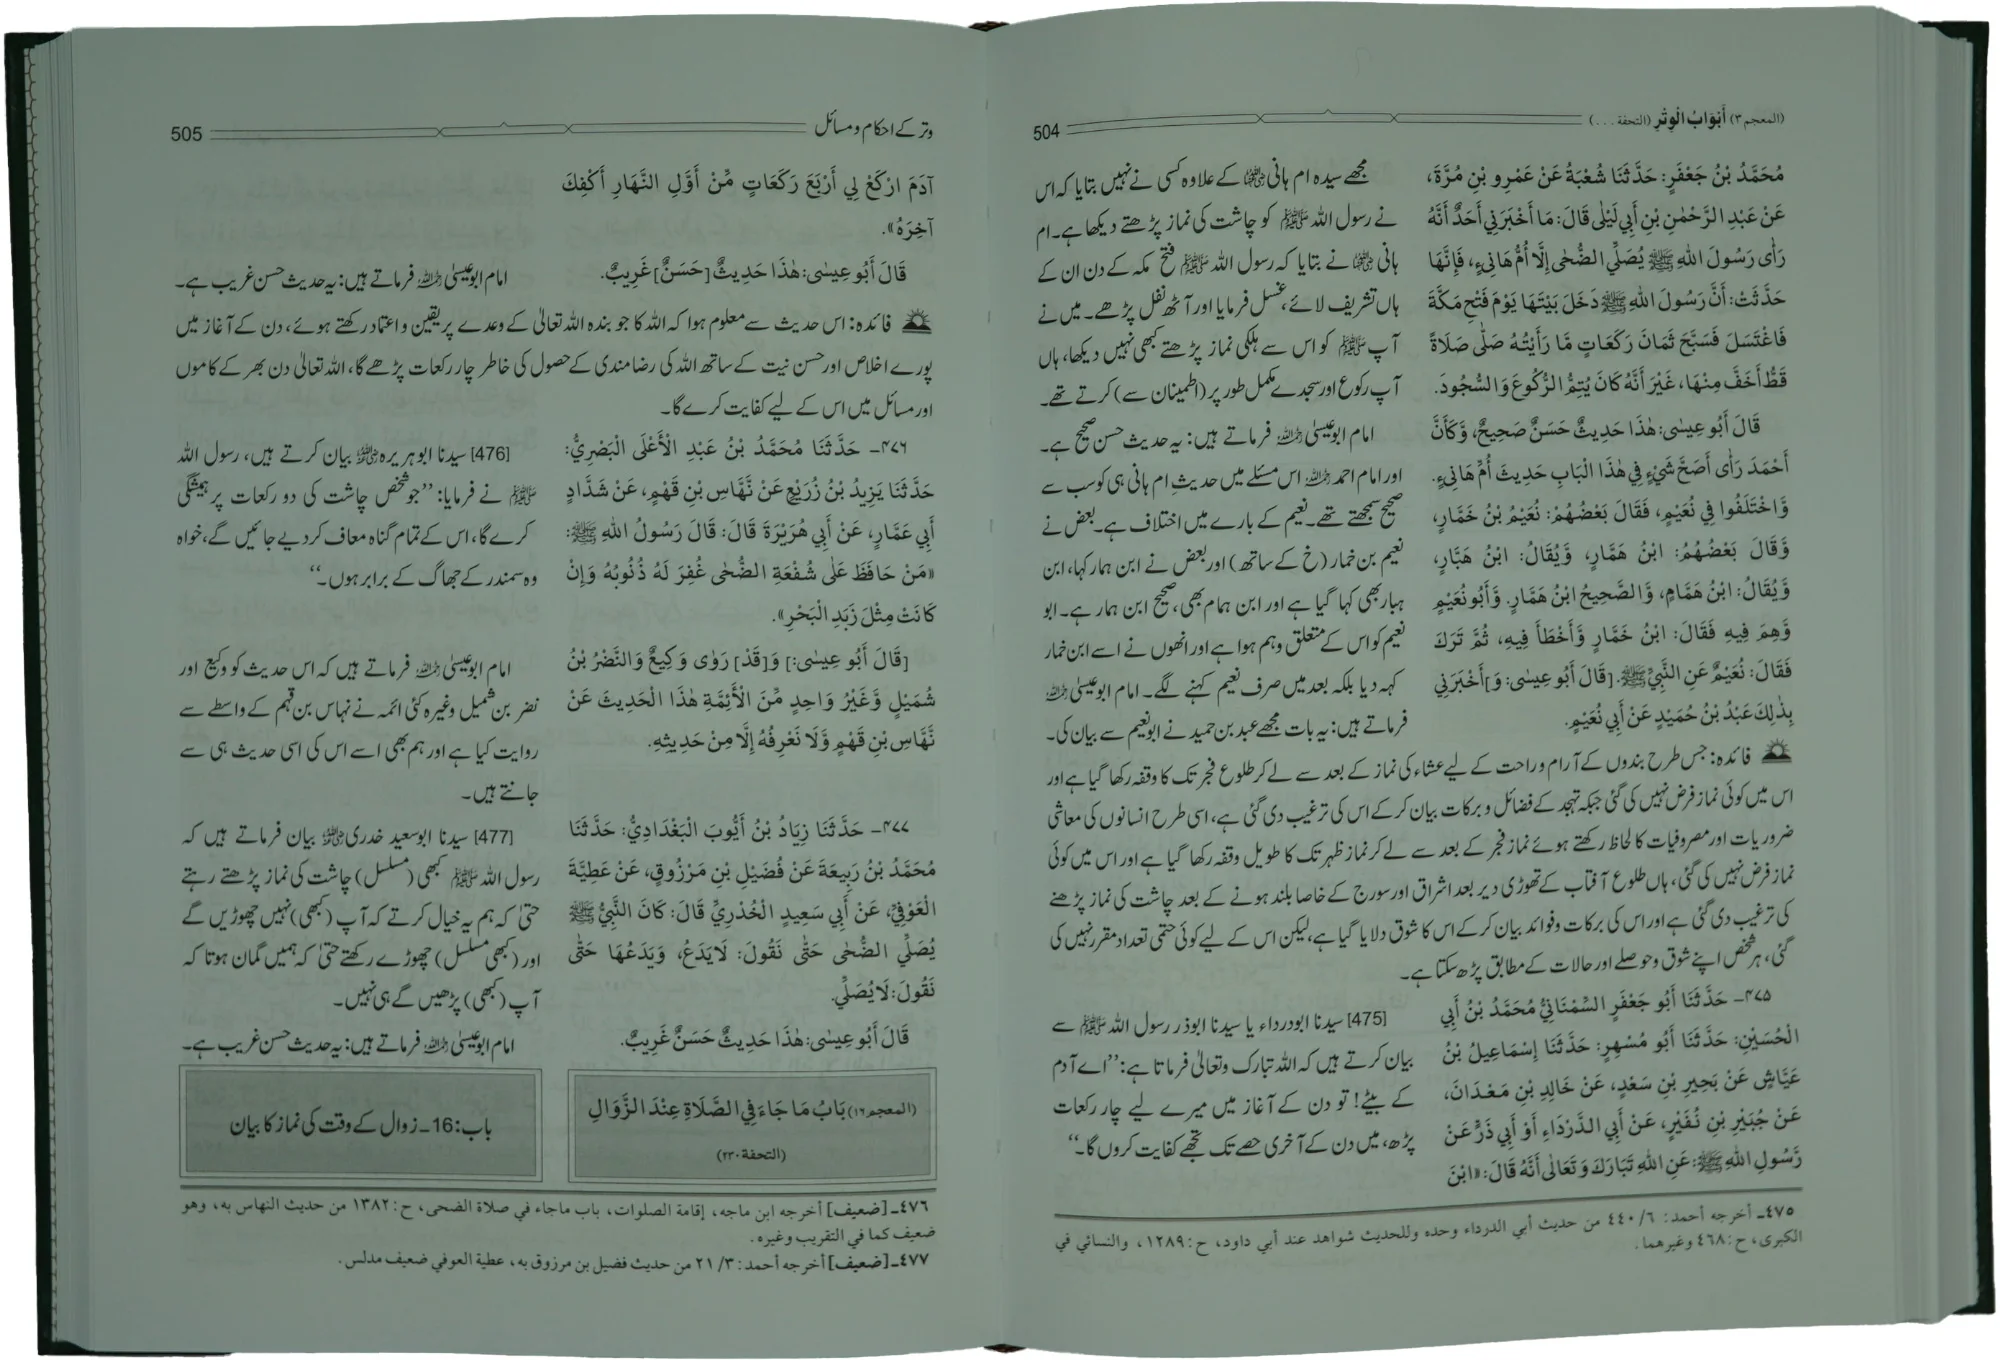 (المعجم ٣) أَبْوَابُ الْوِتْرِ (التحفة . . .)
504
مُحَمَّدُ بْنُ جَعْفَرٍ: حَدَّثَنَا شُعْبَةُ عَنْ عَمْرِو بْنِ مُرَّةَ،
عَنْ عَبْدِ الرَّحْمٰنِ بْنِ أَبِي لَيْلٰى قَالَ: مَا أَخْبَرَنِي أَحَدٌ أَنَّهُ
رَأٰى رَسُولَ اللهِ ﷺ يُصَلِّي الضُّحٰى إِلَّا أُمُّ هَانِىءٍ، فَإِنَّهَا
حَدَّثَتْ: أَنَّ رَسُولَ اللهِ ﷺ دَخَلَ بَيْتَهَا يَوْمَ فَتْحِ مَكَّةَ
فَاغْتَسَلَ فَسَبَّحَ ثَمَانَ رَكَعَاتٍ مَّا رَأَيْتُهُ صَلّٰى صَلَاةً
قَطُّ أَخَفَّ مِنْهَا، غَيْرَ أَنَّهُ كَانَ يُتِمُّ الرُّكُوعَ وَالسُّجُودَ.
قَالَ أَبُو عِيسٰى: هٰذَا حَدِيثٌ حَسَنٌ صَحِيحٌ، وَّكَأَنَّ
أَحْمَدَ رَأٰى أَصَحَّ شَيْءٍ فِي هٰذَا الْبَابِ حَدِيثَ أُمِّ هَانِىءٍ.
وَّاخْتَلَفُوا فِي نُعَيْمٍ، فَقَالَ بَعْضُهُمْ: نُعَيْمُ بْنُ خَمَّارٍ،
وَّقَالَ بَعْضُهُمُ: ابْنُ هَمَّارٍ، وَّيُقَالُ: ابْنُ هَبَّارٍ،
وَّيُقَالُ: ابْنُ هَمَّامٍ، وَّالصَّحِيحُ ابْنُ هَمَّارٍ. وَّأَبُو نُعَيْمٍ
وَّهِمَ فِيهِ فَقَالَ: ابْنُ خَمَّارٍ وَّأَخْطَأَ فِيهِ، ثُمَّ تَرَكَ
فَقَالَ: نُعَيْمٌ عَنِ النَّبِيِّ ﷺ. [قَالَ أَبُو عِيسٰى: وَ]أَخْبَرَنِي
بِذٰلِكَ عَبْدُ بْنُ حُمَيْدٍ عَنْ أَبِي نُعَيْمٍ.
مجھے سیدہ ام ہانی رضی اللہ عنہا کے علاوہ کسی نے نہیں بتایا کہ اس
نے رسول اللہ ﷺ کو چاشت کی نماز پڑھتے دیکھا ہے۔ ام
ہانی رضی اللہ عنہا نے بتایا کہ رسول اللہ ﷺ فتح مکہ کے دن ان کے
ہاں تشریف لائے، غسل فرمایا اور آٹھ نفل پڑھے۔ میں نے
آپ ﷺ کو اس سے ہلکی نماز پڑھتے کبھی نہیں دیکھا، ہاں
آپ رکوع اور سجدے مکمل طور پر (اطمینان سے) کرتے تھے۔
امام ابوعیسیٰ رحمہ اللہ فرماتے ہیں: یہ حدیث حسن صحیح ہے۔
اور امام احمد رحمہ اللہ اس مسئلے میں حدیثِ ام ہانی ہی کو سب سے
صحیح سمجھتے تھے۔ نعیم کے بارے میں اختلاف ہے۔ بعض نے
نعیم بن خمار (خ کے ساتھ) اور بعض نے ابن ہمار کہا، ابن
ہبار بھی کہا گیا ہے اور ابن ہمام بھی، صحیح ابن ہمار ہے۔ ابو
نعیم کو اس کے متعلق وہم ہوا ہے اور انھوں نے اسے ابن خمار
کہہ دیا بلکہ بعد میں صرف نعیم کہنے لگے۔ امام ابوعیسیٰ رحمہ اللہ
فرماتے ہیں: یہ بات مجھے عبد بن حمید نے ابونعیم سے بیان کی۔
فائدہ: جس طرح بندوں کے آرام و راحت کے لیے عشاء کی نماز کے بعد سے لے کر طلوع فجر تک کا وقفہ رکھا گیا ہے اور
اس میں کوئی نماز فرض نہیں کی گئی جبکہ تہجد کے فضائل و برکات بیان کر کے اس کی ترغیب دی گئی ہے، اسی طرح انسانوں کی معاشی
ضروریات اور مصروفیات کا لحاظ رکھتے ہوئے نماز فجر کے بعد سے لے کر نماز ظہر تک کا طویل وقفہ رکھا گیا ہے اور اس میں کوئی
نماز فرض نہیں کی گئی، ہاں طلوع آفتاب کے تھوڑی دیر بعد اشراق اور سورج کے خاصا بلند ہونے کے بعد چاشت کی نماز پڑھنے
کی ترغیب دی گئی ہے اور اس کی برکات و فوائد بیان کر کے اس کا شوق دلایا گیا ہے، لیکن اس کے لیے کوئی حتمی تعداد مقرر نہیں کی
گئی، ہر شخص اپنے شوق و حوصلے اور حالات کے مطابق پڑھ سکتا ہے۔
٤٧٥- حَدَّثَنَا أَبُو جَعْفَرٍ السِّمْنَانِيُّ مُحَمَّدُ بْنُ أَبِي
الْحُسَيْنِ: حَدَّثَنَا أَبُو مُسْهِرٍ: حَدَّثَنَا إِسْمَاعِيلُ بْنُ
عَيَّاشٍ عَنْ بَحِيرِ بْنِ سَعْدٍ، عَنْ خَالِدِ بْنِ مَعْدَانَ،
عَنْ جُبَيْرِ بْنِ نُفَيْرٍ، عَنْ أَبِي الدَّرْدَاءِ أَوْ أَبِي ذَرٍّ عَنْ
رَّسُولِ اللهِ ﷺ: عَنِ اللهِ تَبَارَكَ وَتَعَالٰى أَنَّهُ قَالَ: «ابْنَ
[475] سیدنا ابودرداء یا سیدنا ابوذر رسول اللہ ﷺ سے
بیان کرتے ہیں کہ اللہ تبارک وتعالیٰ فرماتا ہے: ’’اے آدم
کے بیٹے! تو دن کے آغاز میں میرے لیے چار رکعات
پڑھ، میں دن کے آخری حصے تک تجھے کفایت کروں گا۔‘‘
٤٧٥ـ أخرجه أحمد: ٦/ ٤٤٠ من حديث أبي الدرداء وحده وللحديث شواهد عند أبي داود، ح: ١٢٨٩، والنسائي في
الكبرى، ح: ٤٦٨ وغيرهما.
وتر کے احکام و مسائل
505
آدَمَ ارْكَعْ لِي أَرْبَعَ رَكَعَاتٍ مِّنْ أَوَّلِ النَّهَارِ أَكْفِكَ
آخِرَهُ».
قَالَ أَبُو عِيسٰى: هٰذَا حَدِيثٌ [حَسَنٌ] غَرِيبٌ.
امام ابوعیسیٰ رحمہ اللہ فرماتے ہیں: یہ حدیث حسن غریب ہے۔
فائدہ: اس حدیث سے معلوم ہوا کہ اللہ کا جو بندہ اللہ تعالیٰ کے وعدے پر یقین و اعتماد رکھتے ہوئے، دن کے آغاز میں
پورے اخلاص اور حسن نیت کے ساتھ اللہ کی رضا مندی کے حصول کی خاطر چار رکعات پڑھے گا، اللہ تعالیٰ دن بھر کے کاموں
اور مسائل میں اس کے لیے کفایت کرے گا۔
٤٧٦- حَدَّثَنَا مُحَمَّدُ بْنُ عَبْدِ الْأَعْلَى الْبَصْرِيُّ:
حَدَّثَنَا يَزِيدُ بْنُ زُرَيْعٍ عَنْ نَّهَّاسِ بْنِ قَهْمٍ، عَنْ شَدَّادٍ
أَبِي عَمَّارٍ، عَنْ أَبِي هُرَيْرَةَ قَالَ: قَالَ رَسُولُ اللهِ ﷺ:
«مَنْ حَافَظَ عَلٰى شُفْعَةِ الضُّحٰى غُفِرَ لَهُ ذُنُوبُهُ وَإِنْ
كَانَتْ مِثْلَ زَبَدِ الْبَحْرِ».
[قَالَ أَبُو عِيسٰى:] وَ[قَدْ] رَوٰى وَكِيعٌ وَالنَّضْرُ بْنُ
شُمَيْلٍ وَّغَيْرُ وَاحِدٍ مِّنَ الْأَئِمَّةِ هٰذَا الْحَدِيثَ عَنْ
نَّهَّاسِ بْنِ قَهْمٍ وَّلَا نَعْرِفُهُ إِلَّا مِنْ حَدِيثِهِ.
[476] سیدنا ابوہریرہ رضی اللہ عنہ بیان کرتے ہیں، رسول اللہ
ﷺ نے فرمایا: ’’جو شخص چاشت کی دو رکعات پر ہمیشگی
کرے گا، اس کے تمام گناہ معاف کر دیے جائیں گے، خواہ
وہ سمندر کے جھاگ کے برابر ہوں۔‘‘
امام ابوعیسیٰ رحمہ اللہ فرماتے ہیں کہ اس حدیث کو وکیع اور
نضر بن شمیل وغیرہ کئی ائمہ نے نہاس بن قہم کے واسطے سے
روایت کیا ہے اور ہم بھی اسے اس کی اسی حدیث ہی سے
جانتے ہیں۔
٤٧٧- حَدَّثَنَا زِيَادُ بْنُ أَيُّوبَ الْبَغْدَادِيُّ: حَدَّثَنَا
مُحَمَّدُ بْنُ رَبِيعَةَ عَنْ فُضَيْلِ بْنِ مَرْزُوقٍ، عَنْ عَطِيَّةَ
الْعَوْفِيِّ، عَنْ أَبِي سَعِيدٍ الْخُدْرِيِّ قَالَ: كَانَ النَّبِيُّ ﷺ
يُصَلِّي الضُّحٰى حَتّٰى نَقُولَ: لَا يَدَعُ، وَيَدَعُهَا حَتّٰى
نَقُولَ: لَا يُصَلِّي.
قَالَ أَبُو عِيسٰى: هٰذَا حَدِيثٌ حَسَنٌ غَرِيبٌ.
[477] سیدنا ابوسعید خدری رضی اللہ عنہ بیان فرماتے ہیں کہ
رسول اللہ ﷺ کبھی (مسلسل) چاشت کی نماز پڑھتے رہتے
حتیٰ کہ ہم یہ خیال کرتے کہ آپ (کبھی) نہیں چھوڑیں گے
اور (کبھی مسلسل) چھوڑے رکھتے حتیٰ کہ ہمیں گمان ہوتا کہ
آپ (کبھی) پڑھیں گے ہی نہیں۔
امام ابوعیسیٰ رحمہ اللہ فرماتے ہیں: یہ حدیث حسن غریب ہے۔
(المعجم ١٦) بَابُ مَا جَاءَ فِي الصَّلَاةِ عِنْدَ الزَّوَالِ
(التحفة ٢٣٠)
باب: 16۔ زوال کے وقت کی نماز کا بیان
٤٧٦ـ [ضعيف] أخرجه ابن ماجه، إقامة الصلوات، باب ماجاء في صلاة الضحى، ح: ١٣٨٢ من حديث النهاس به، وهو
ضعيف كما في التقريب وغيره.
٤٧٧ـ [ضعيف] أخرجه أحمد: ٣/ ٢١ من حديث فضيل بن مرزوق به، عطية العوفي ضعيف مدلس.